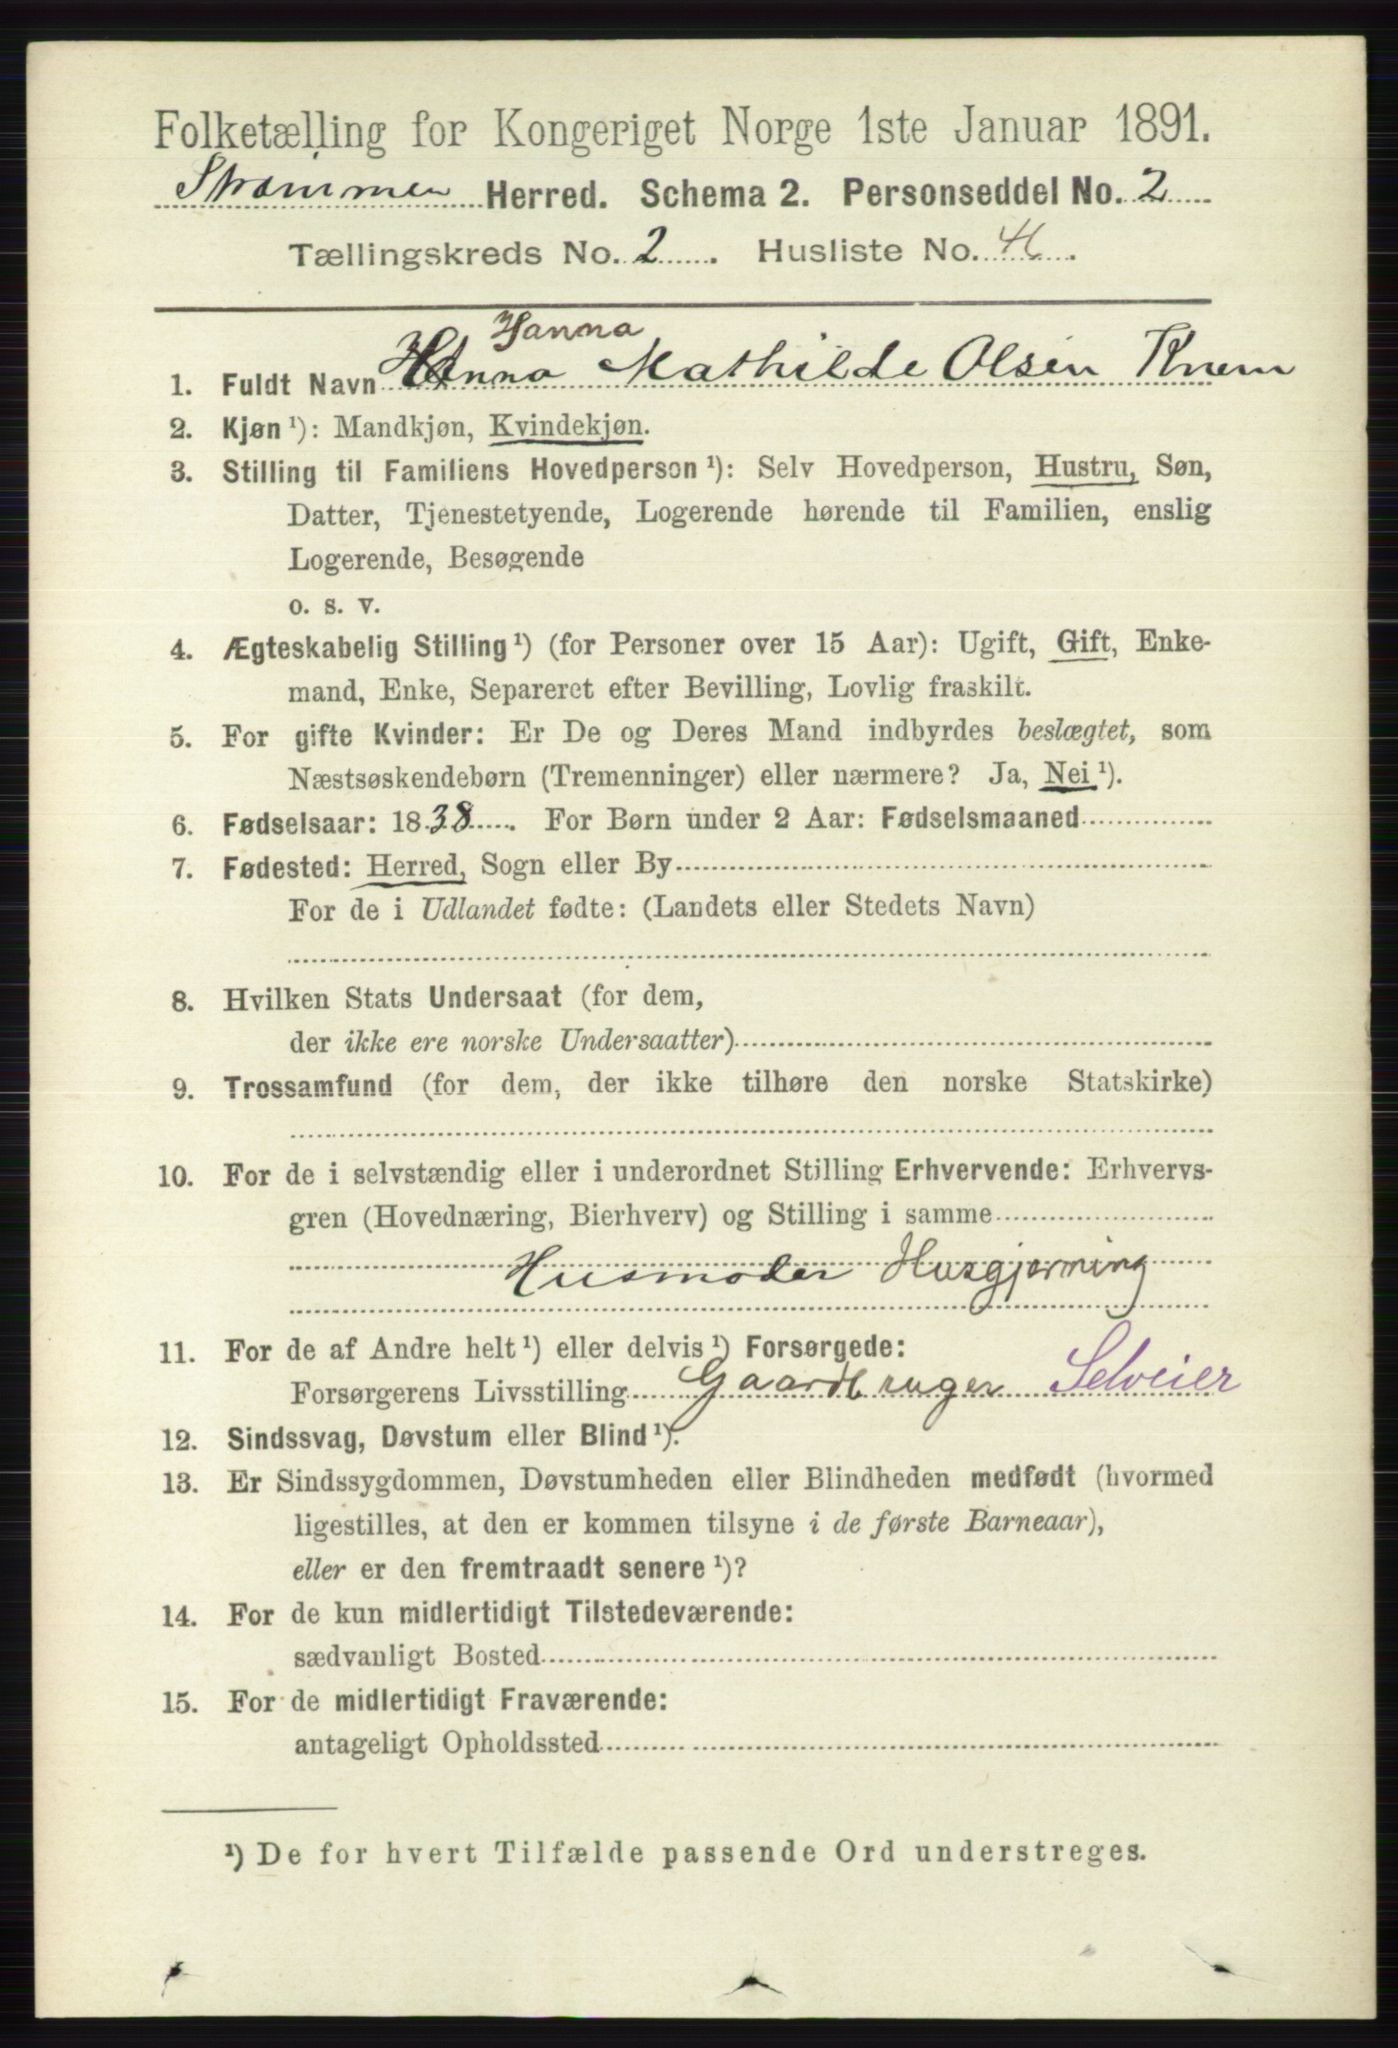 Folketælling for Kongeriget Norge 1ste Januar 1891.
Strømmen Herred. Schema 2. Personseddel No. 2
Tællingskreds No. 2. Husliste No. 41.
Hanna
1. Fuldt Navn Hanna Mathilde Olsen Knem
2. Kjøn ¹): Mandkjøn, Kvindekjøn.
3. Stilling til Familiens Hovedperson ¹): Selv Hovedperson, Hustru, Søn,
Datter, Tjenestetyende, Logerende hørende til Familien, enslig
Logerende, Besøgende
o. s. v.
4. Ægteskabelig Stilling ¹) (for Personer over 15 Aar): Ugift, Gift, Enke-
mand, Enke, Separeret efter Bevilling, Lovlig fraskilt.
5. For gifte Kvinder: Er De og Deres Mand indbyrdes beslægtet, som
Næstsøskendebørn (Tremenninger) eller nærmere? Ja, Nei ¹).
6. Fødselsaar: 1838. For Børn under 2 Aar: Fødselsmaaned
7. Fødested: Herred, Sogn eller By
For de i Udlandet fødte: (Landets eller Stedets Navn)
8. Hvilken Stats Undersaat (for dem,
der ikke ere norske Undersaatter)
9. Trossamfund (for dem, der ikke tilhøre den norske Statskirke)
10. For de i selvstændig eller i underordnet Stilling Erhvervende: Erhvervs-
gren (Hovednæring, Bierhverv) og Stilling i samme
Husmoder Husgjerning
11. For de af Andre helt ¹) eller delvis ¹) Forsørgede:
Forsørgerens Livsstilling Gaardbruger Selveier
12. Sindssvag, Døvstum eller Blind ¹).
13. Er Sindssygdommen, Døvstumheden eller Blindheden medfødt (hvormed
ligestilles, at den er kommen tilsyne i de første Barneaar),
eller er den fremtraadt senere ¹)?
14. For de kun midlertidigt Tilstedeværende:
sædvanligt Bosted
15. For de midlertidigt Fraværende:
antageligt Opholdssted
¹) De for hvert Tilfælde passende Ord understreges.